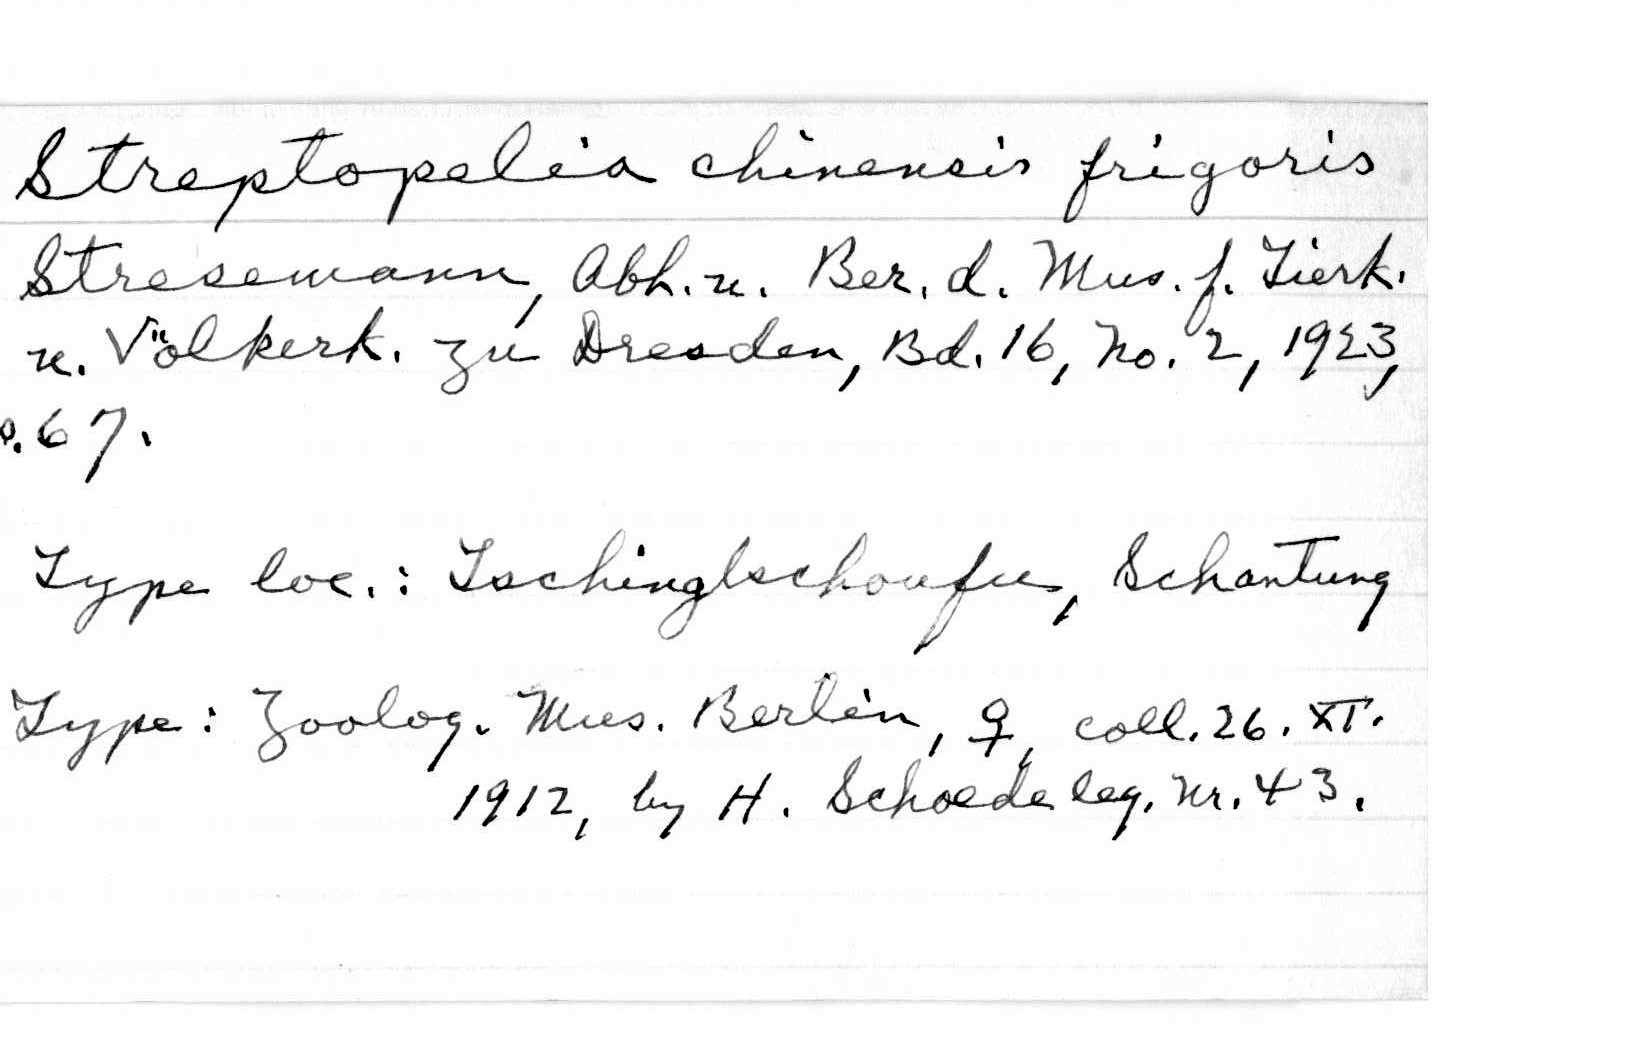 Streptopelia chinensis frigoris
Stresemann, Abh. u. Ber. d. Mus. f. Tierk.
u. Völkerk. zu Dresden, Bd. 16, No. 2, 1923,
p. 67.
Type loc.: Tschingtschoufu, Schantung
Type: Zoolog. Mus. Berlin, ♀, coll. 26. XI.
1912, by H. Schoede leg. Nr. 43.